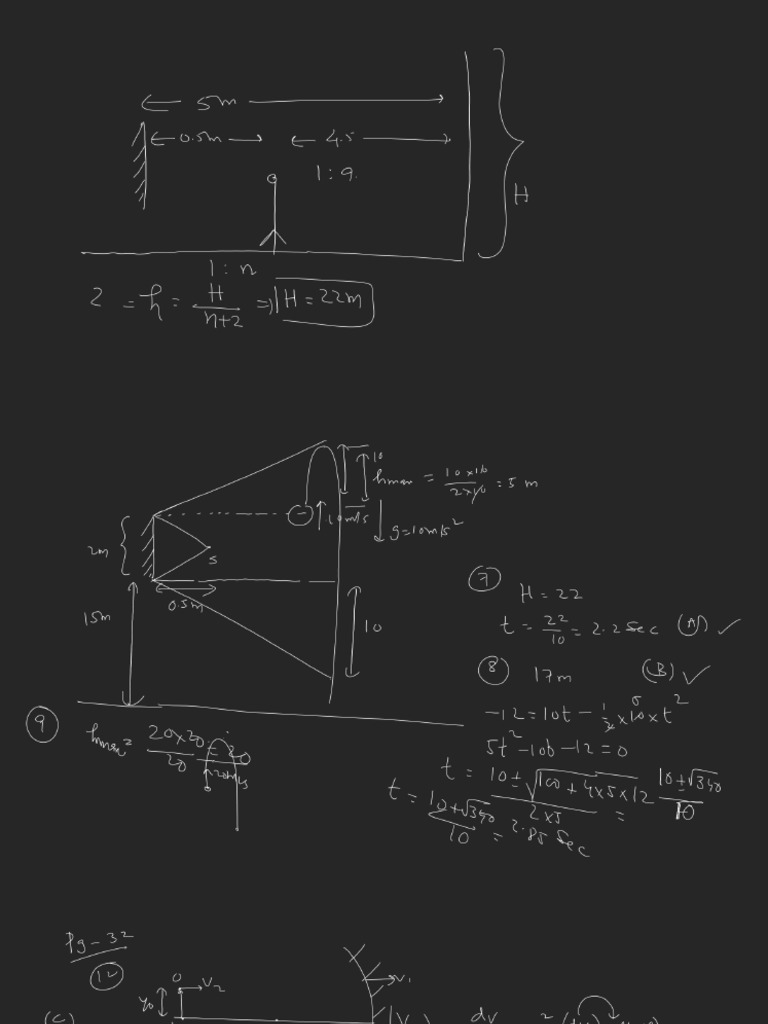 5m
0.5m
4.5
1:9
H
1 : n
2 = h = H/(n+2) ⇒ H = 22m
10
hmax = 10×10/2×10 = 5 m
10m/s
g=10m/s²
2m
s
0.5m
15m
10
7
H = 22
t = 22/10 = 2.2 sec (A) ✓
8
17m (B) ✓
-12 = 10t - 1/2 ×10×t²
5
5t² -10t -12 = 0
t = 10 ± √100 + 4×5×12 / 2×5 = 10±√340 / 10
t = 10+√340 / 10 = 2.85 sec
9
hmax = 20×20/20 = 20
20m/s
Pg - 32
12
O
V2
y0
V1
(C)
dv